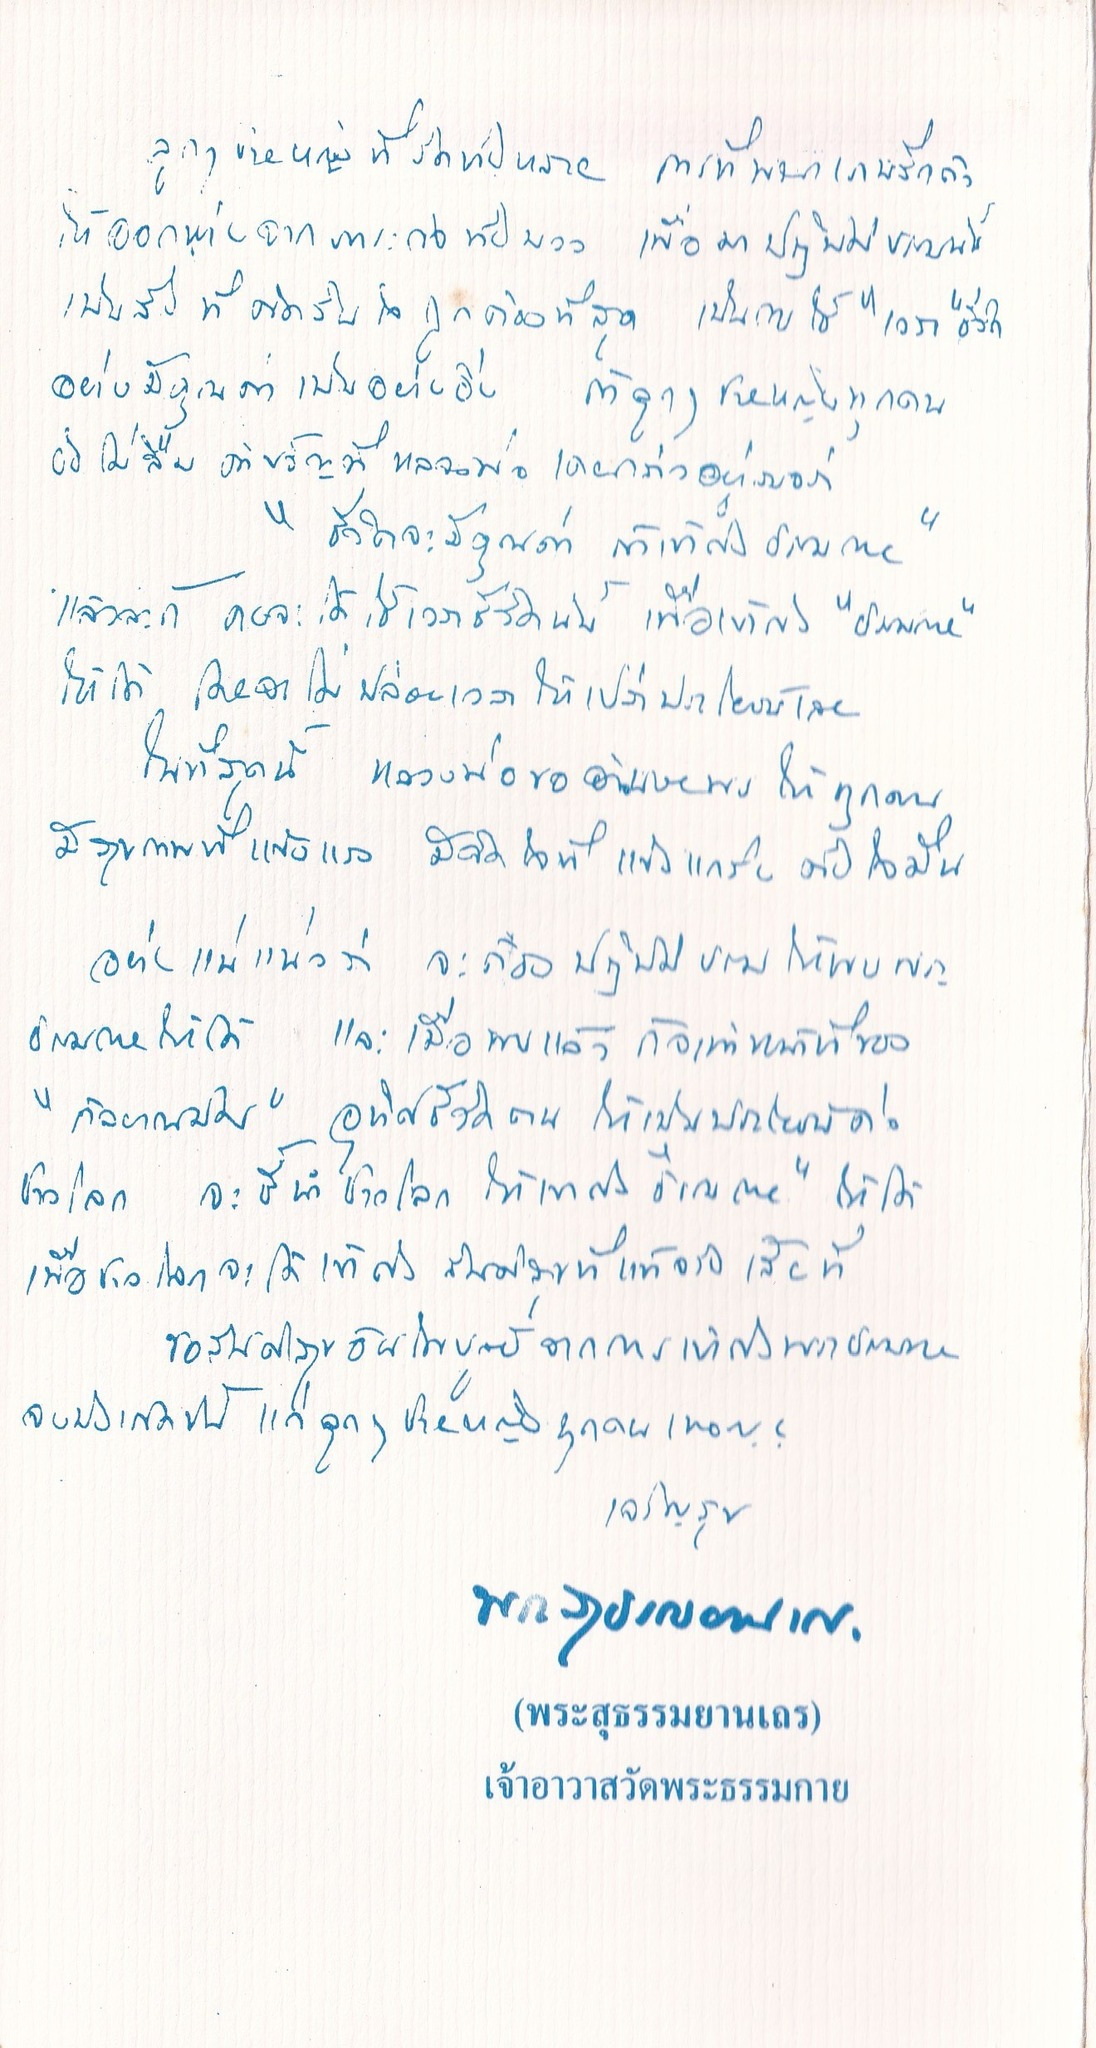 ลูกๆ ชายหญิงที่รักทั้งหลาย การที่พวกเราปลีกตัว
ให้ออกห่างจากภาระกิจทั้งปวง เพื่อมาปฏิบัติธรรมนี้
เป็นสิ่งที่ตัดสินใจถูกต้องที่สุด เป็นการใช้ "เวลา" ชีวิต
อย่างมีคุณค่าเป็นอย่างยิ่ง ถ้าลูกๆ ชายหญิงทุกคน
ยังไม่ลืม คำขวัญที่หลวงพ่อ เคยกล่าวอยู่เสมอว่า
" ชีวิตจะมีคุณค่า ถ้าเข้าถึงธรรมกาย "
แล้วละก็ คงจะได้ใช้เวลาชีวิตนี้ เพื่อเข้าถึง "ธรรมกาย"
ให้ได้ โดยจะไม่ปล่อยเวลาให้เปล่าประโยชน์เลย
ในที่สุดนี้ หลวงพ่อขออำนวยพร ให้ทุกคน
มีสุขภาพที่แข็งแรง มีจิตใจที่แข็งแกร่ง ตั้งใจมั่น
อย่างแน่แน่วว่า จะต้องปฏิบัติธรรมให้พบพระ
ธรรมกายให้ได้ และเมื่อพบแล้ว ก็จะทำหน้าที่ของ
"กัลยาณมิตร" อุทิศชีวิตตน ให้เป็นประโยชน์ต่อ
ชาวโลก จะชี้นำชาวโลก ให้เข้าถึงธรรมกาย" ให้ได้
เพื่อชาวโลกจะได้เข้าถึง สันติสุขที่แท้จริงเสียที
ขอสันติสุขอันไพบูลย์จากการเข้าถึงพระธรรมกาย
จงบังเกิดขึ้นแก่ลูกๆ ชายหญิงทุกคนเทอญ
เจริญสุข
พระสุธรรมยานเถร.
(พระสุธรรมยานเถร)
เจ้าอาวาสวัดพระธรรมกาย